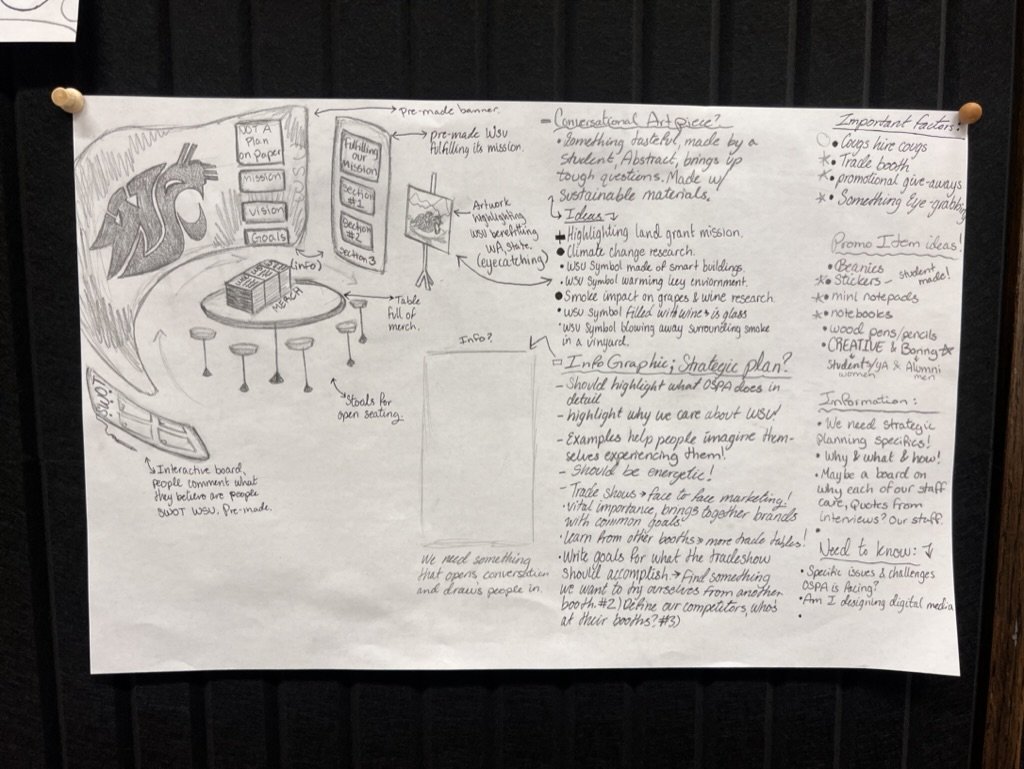 pre-made banner.
NOT A
Plan
on Paper
Mission
Vision
Goals
(info)
WSU
MERCH
Table
full of
merch.
Stools for
open seating.
SWOT
Interactive board,
people comment what
they believe are people
SWOT WSU. Pre-made.
Fulfilling
our
Mission
Section
#1
Section
#2
Section 3
pre-made WSU
fulfilling its mission.
Artwork
highlighting
WSU benefiting
WA State.
(eyecatching)
Info?
We need something
that opens conversation
and draws people in.
- Conversational Art piece?
• Something tasteful, made by a
student, Abstract, brings up
tough questions. Made w/
sustainable materials.
Ideas
Highlighting land grant mission.
• Climate change research.
• WSU symbol made of smart buildings.
• WSU symbol warming icey enviornment.
• Smoke impact on grapes & wine research
• WSU symbol filled with wine & is glass
• WSU symbol blowing away surrounding smoke
in a vinyard.
Info Graphic; Strategic plan?
- Should highlight what OSPA does in
detail
- highlight why we care about WSU!
- Examples help people imagine them-
selves experiencing them!
- Should be energetic!
- Trade shows → face to face marketing!
• Vital importance, brings together brands
with common goals
• Learn from other booths → more trade tables!
• Write goals for what the tradeshow
should accomplish → Find something
we want to try ourselves from another
booth. #2) Define our competitors, who's
at their booths? #3)
Important factors:
• Cougs hire cougs
* • Trade booth
* • promotional give-aways
* • Something Eye-grabbing
Promo Item ideas!
• Beanies
* • Stickers - student made!
* • mini notepads
* • notebooks
• wood pens/pencils
• CREATIVE & Boring
Students/YA & Alumni
women men
Information:
• We need strategic
planning specifics!
• Why & what & how!
• Maybe a board on
why each of our staff
care, Quotes from
interviews? Our staff.
•
Need to know:
• Specific issues & challenges
OSPA is facing?
• Am I designing digital media
•